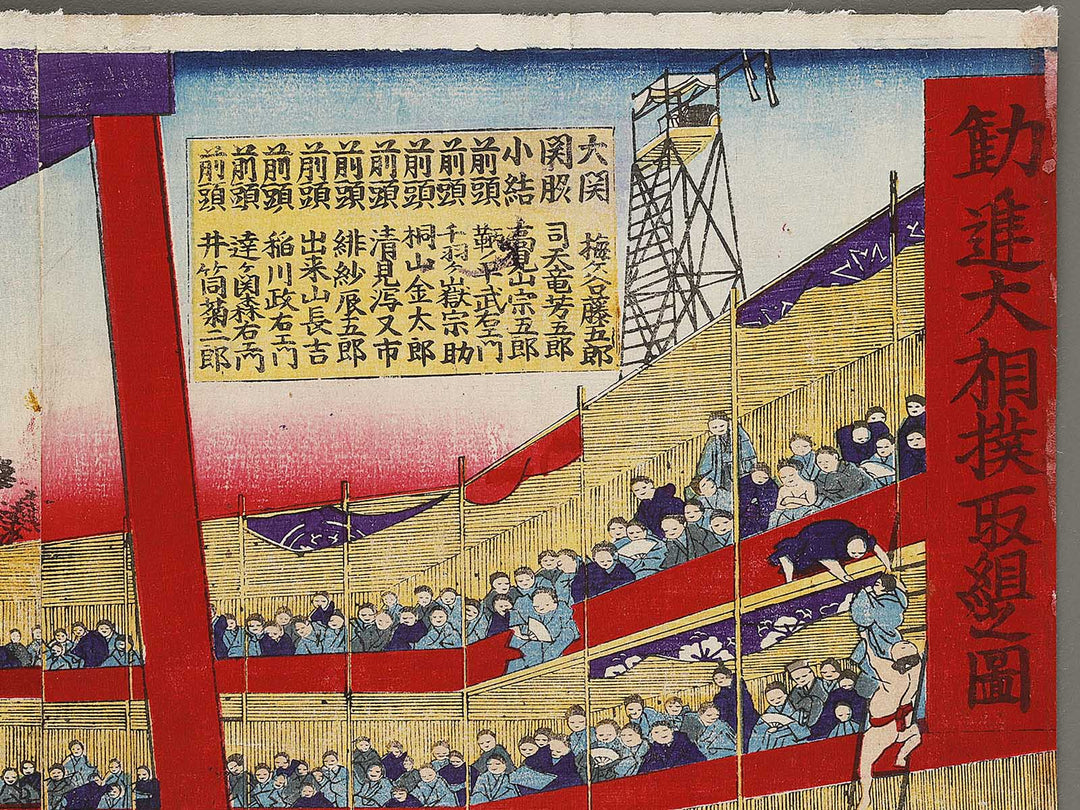 勧進大相撲取組之圖
大関 梅ヶ谷藤五郎
関脇 司天竜芳五郎
小結 高見山宗五郎
前頭 鞆ノ平武右エ門
前頭 千羽ヶ嶽宗助
前頭 桐山金太郎
前頭 清見泻又市
前頭 緋紗辰五郎
前頭 出来山長吉
前頭 稲川政右エ門
前頭 達ヶ関森右エ門
前頭 井筒菊二郎